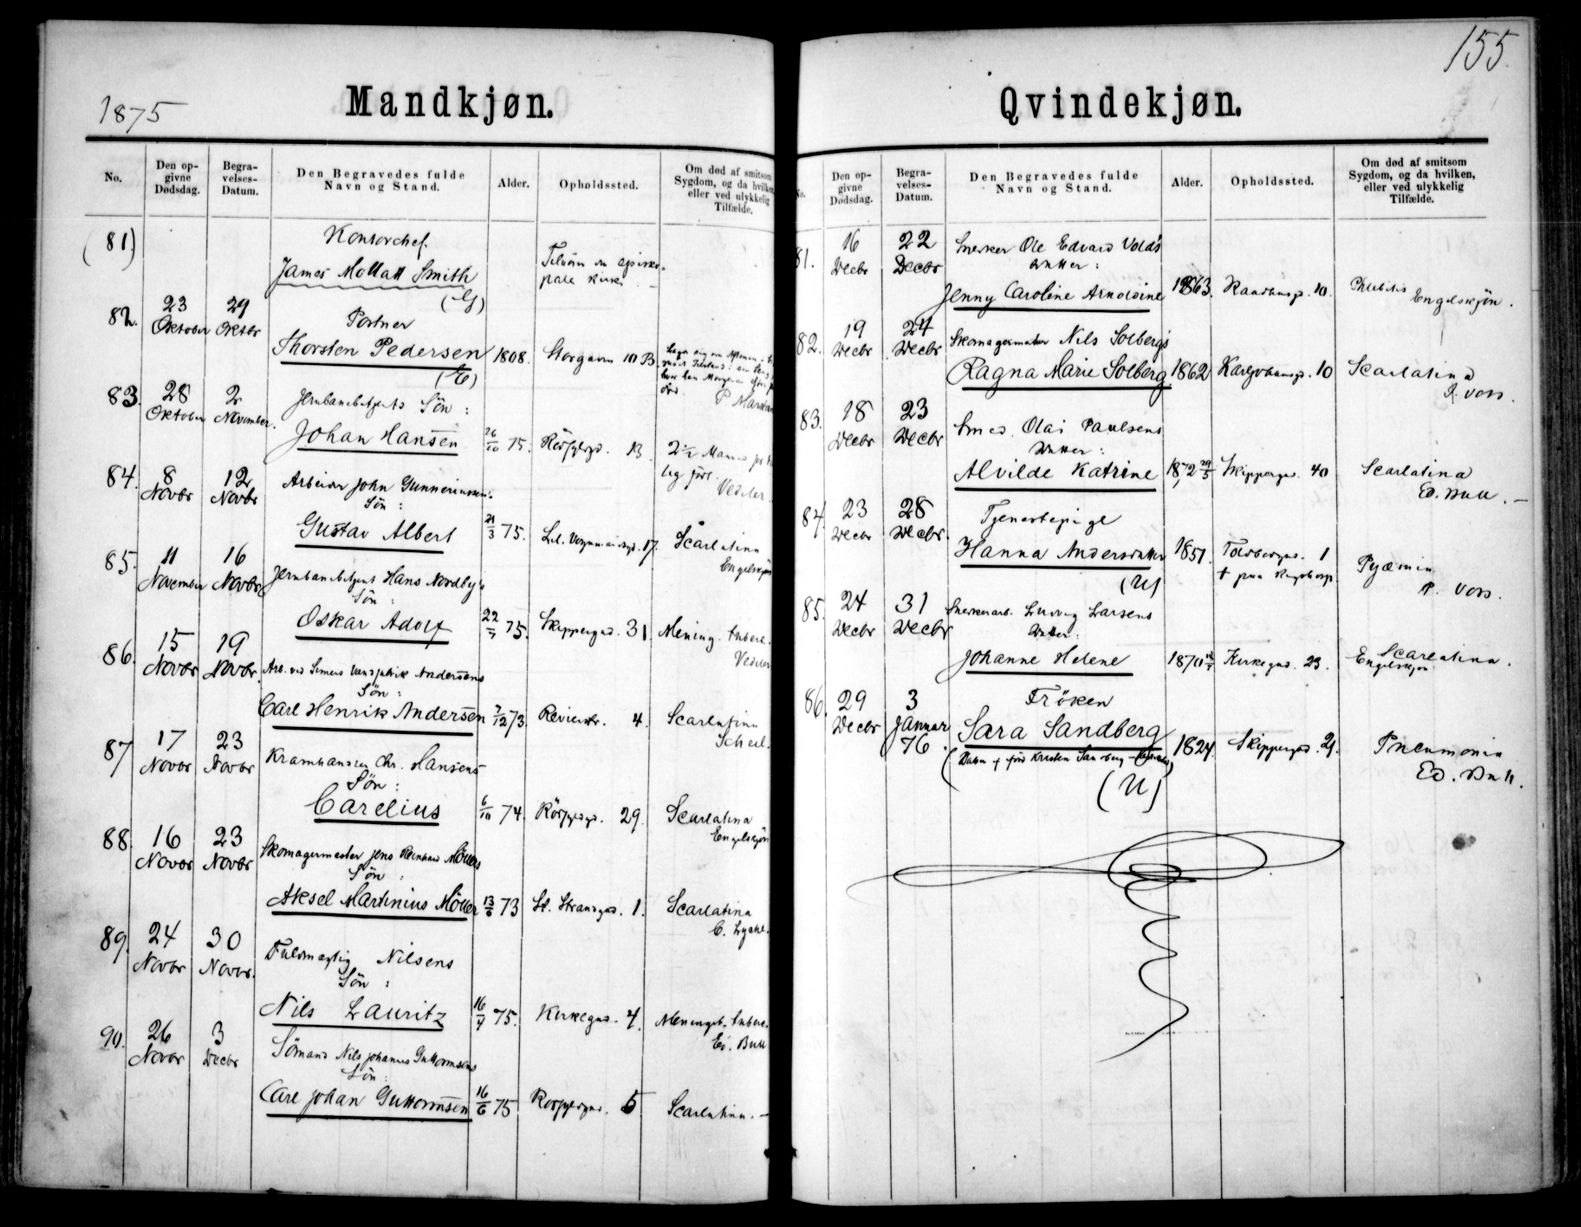 155.
1875
Mandkjøn.
No.
Den opgivne Dødsdag.
Begravelses-Datum.
Den Begravedes fulde Navn og Stand.
Alder.
Opholdssted.
Om død af smitsom Sygdom, og da hvilken, eller ved ulykkelig Tilfælde.
(81)
Kontorchef.
James Moffatt Smith
(G)
pale Kirke
82.
23 Oktober
29 Oktbr
Portner
Thorsten Pedersen
1808.
Storgaden 10 B
83.
28 Oktober
2 November.
Jernbanebetjents Sön:
Johan Hansen
26/10 75.
13
2 1/2
Vedeler.
84.
8 Novbr
12 Novbr
Arbeider John Gunneriussens
Sön:
Gustav Albert
21/3 75.
17.
Scarlatina
Engelskjön
85.
11 November
16 Novbr
Jernbanebetjent Hans Nordbys
Sön:
Oskar Adolf
22/7 75.
Skippergad. 31.
Mening. tuberc.
Vedeler
86.
15 Novbr
19 Novbr.
Andersens
Sön:
Carl Henrik Andersen
7/12 73.
Revierstr. 4.
Scarlatina
87
17 Novbr
23 Novbr
Kramhandler Chr. Hansens
Sön:
Carelius
6/10 74.
29.
Scarlatina
Engelskjön
88.
16 Novbr
23 Novbr
Skomagermester Jens Reinhard Möllers
Sön:
Aksel Martinius Möller
13/6 73
St. Strandgd. 1.
Scarlatina
89.
24 Novbr
30 Novbr.
Fuldmægtig Nilsens
Sön:
Nils Lauritz
16/7 75.
Kirkegad. 7.
Meningit. tuberc.
Ed. Bull
90.
26 Novbr
3 Decbr
Sömand Nils Johannes Guttormsens
Sön:
Carl Johan Guttormsen
16/6 75
5
Scarlatina. —
Qvindekjøn.
No.
Den opgivne Dødsdag.
Begravelses-Datum.
Den Begravedes fulde Navn og Stand.
Alder.
Opholdssted.
Om død af smitsom Sygdom, og da hvilken, eller ved ulykkelig Tilfælde.
81.
16 Decbr
22 Decbr
Snekker Ole Edvard Volds
Datter:
Jenny Caroline Arnoldine
1863.
10.
Engelskjön.
82.
19 Decbr
24 Decbr
Skomagermester Nils Solbergs
Ragna Marie Solberg
1862
10
Scarlatina
P. Voss.
83.
18 Decbr
23 Decbr
Smed Olai Paulsens
Datter:
Alvilde Katrine
1872 29/5
Skippergad. 40
Scarlatina
Ed. Bull. —
84.
23 Decbr
28 Decbr.
Tjenestepige
Hanna Andersdatter
(U)
1851.
Toldbodgad. 1
Pyæmia
P. Voss.
85.
24 Decbr
31 Decbr
Snekkerarb. Ludvig Larsens
Datter:
Johanne Helene
1870
Kirkegad. 23.
Scarlatina.
Engelskjön
86.
29 Decbr
3 Januar 76.
Fröken
Sara Sandberg
(U)
1824.
Skippergad.
Pneumonia
Ed. Bull.